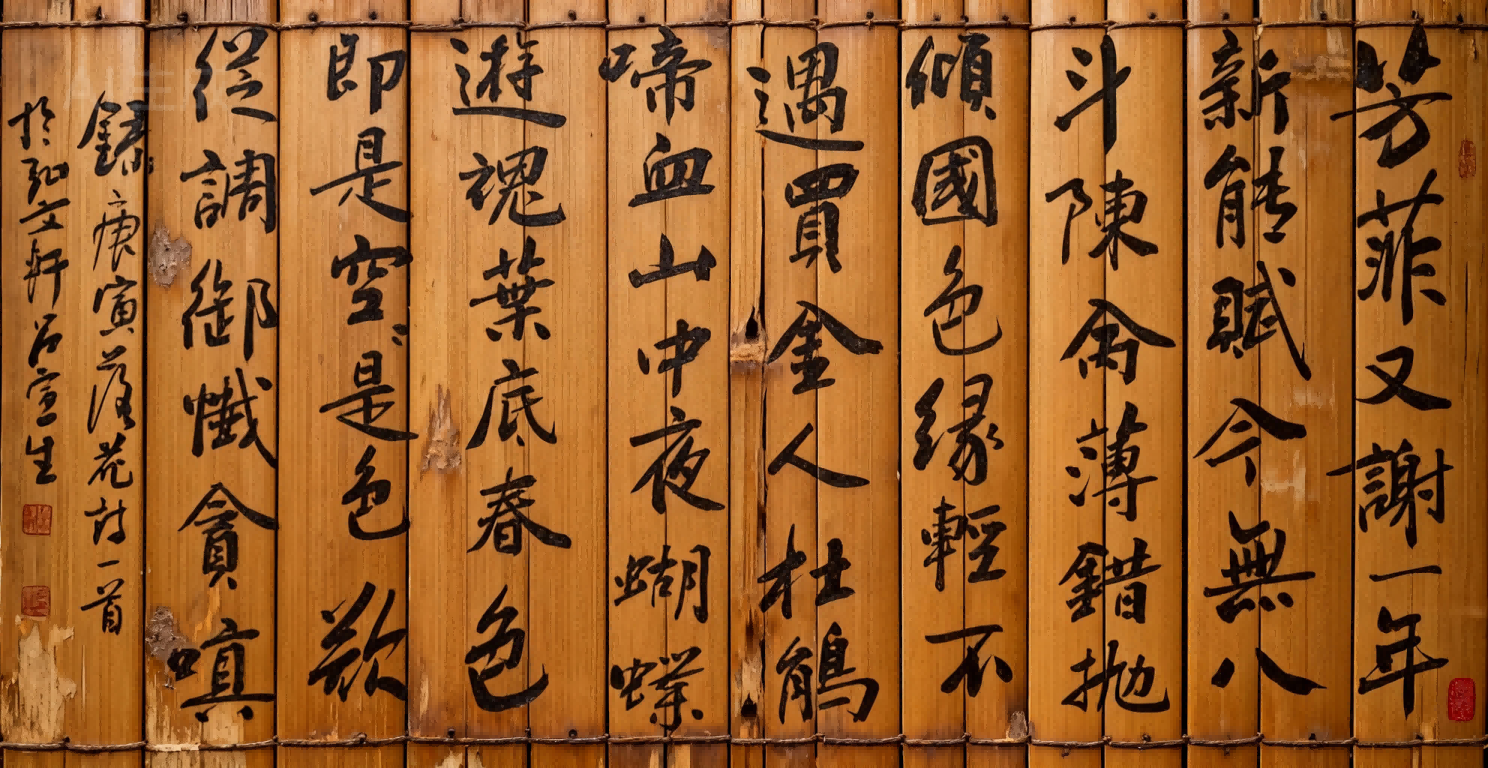 芳菲又謝一年
新能賦今無八
斗陳命薄錯拋
傾國色緣輕不
遇買金人杜鵑
啼血山中夜蝴蝶
遊魂葉底春色
即是空〻是色欲
從調御懺貪嗔
錄唐寅落花詩一首
於弘文軒呂宣生